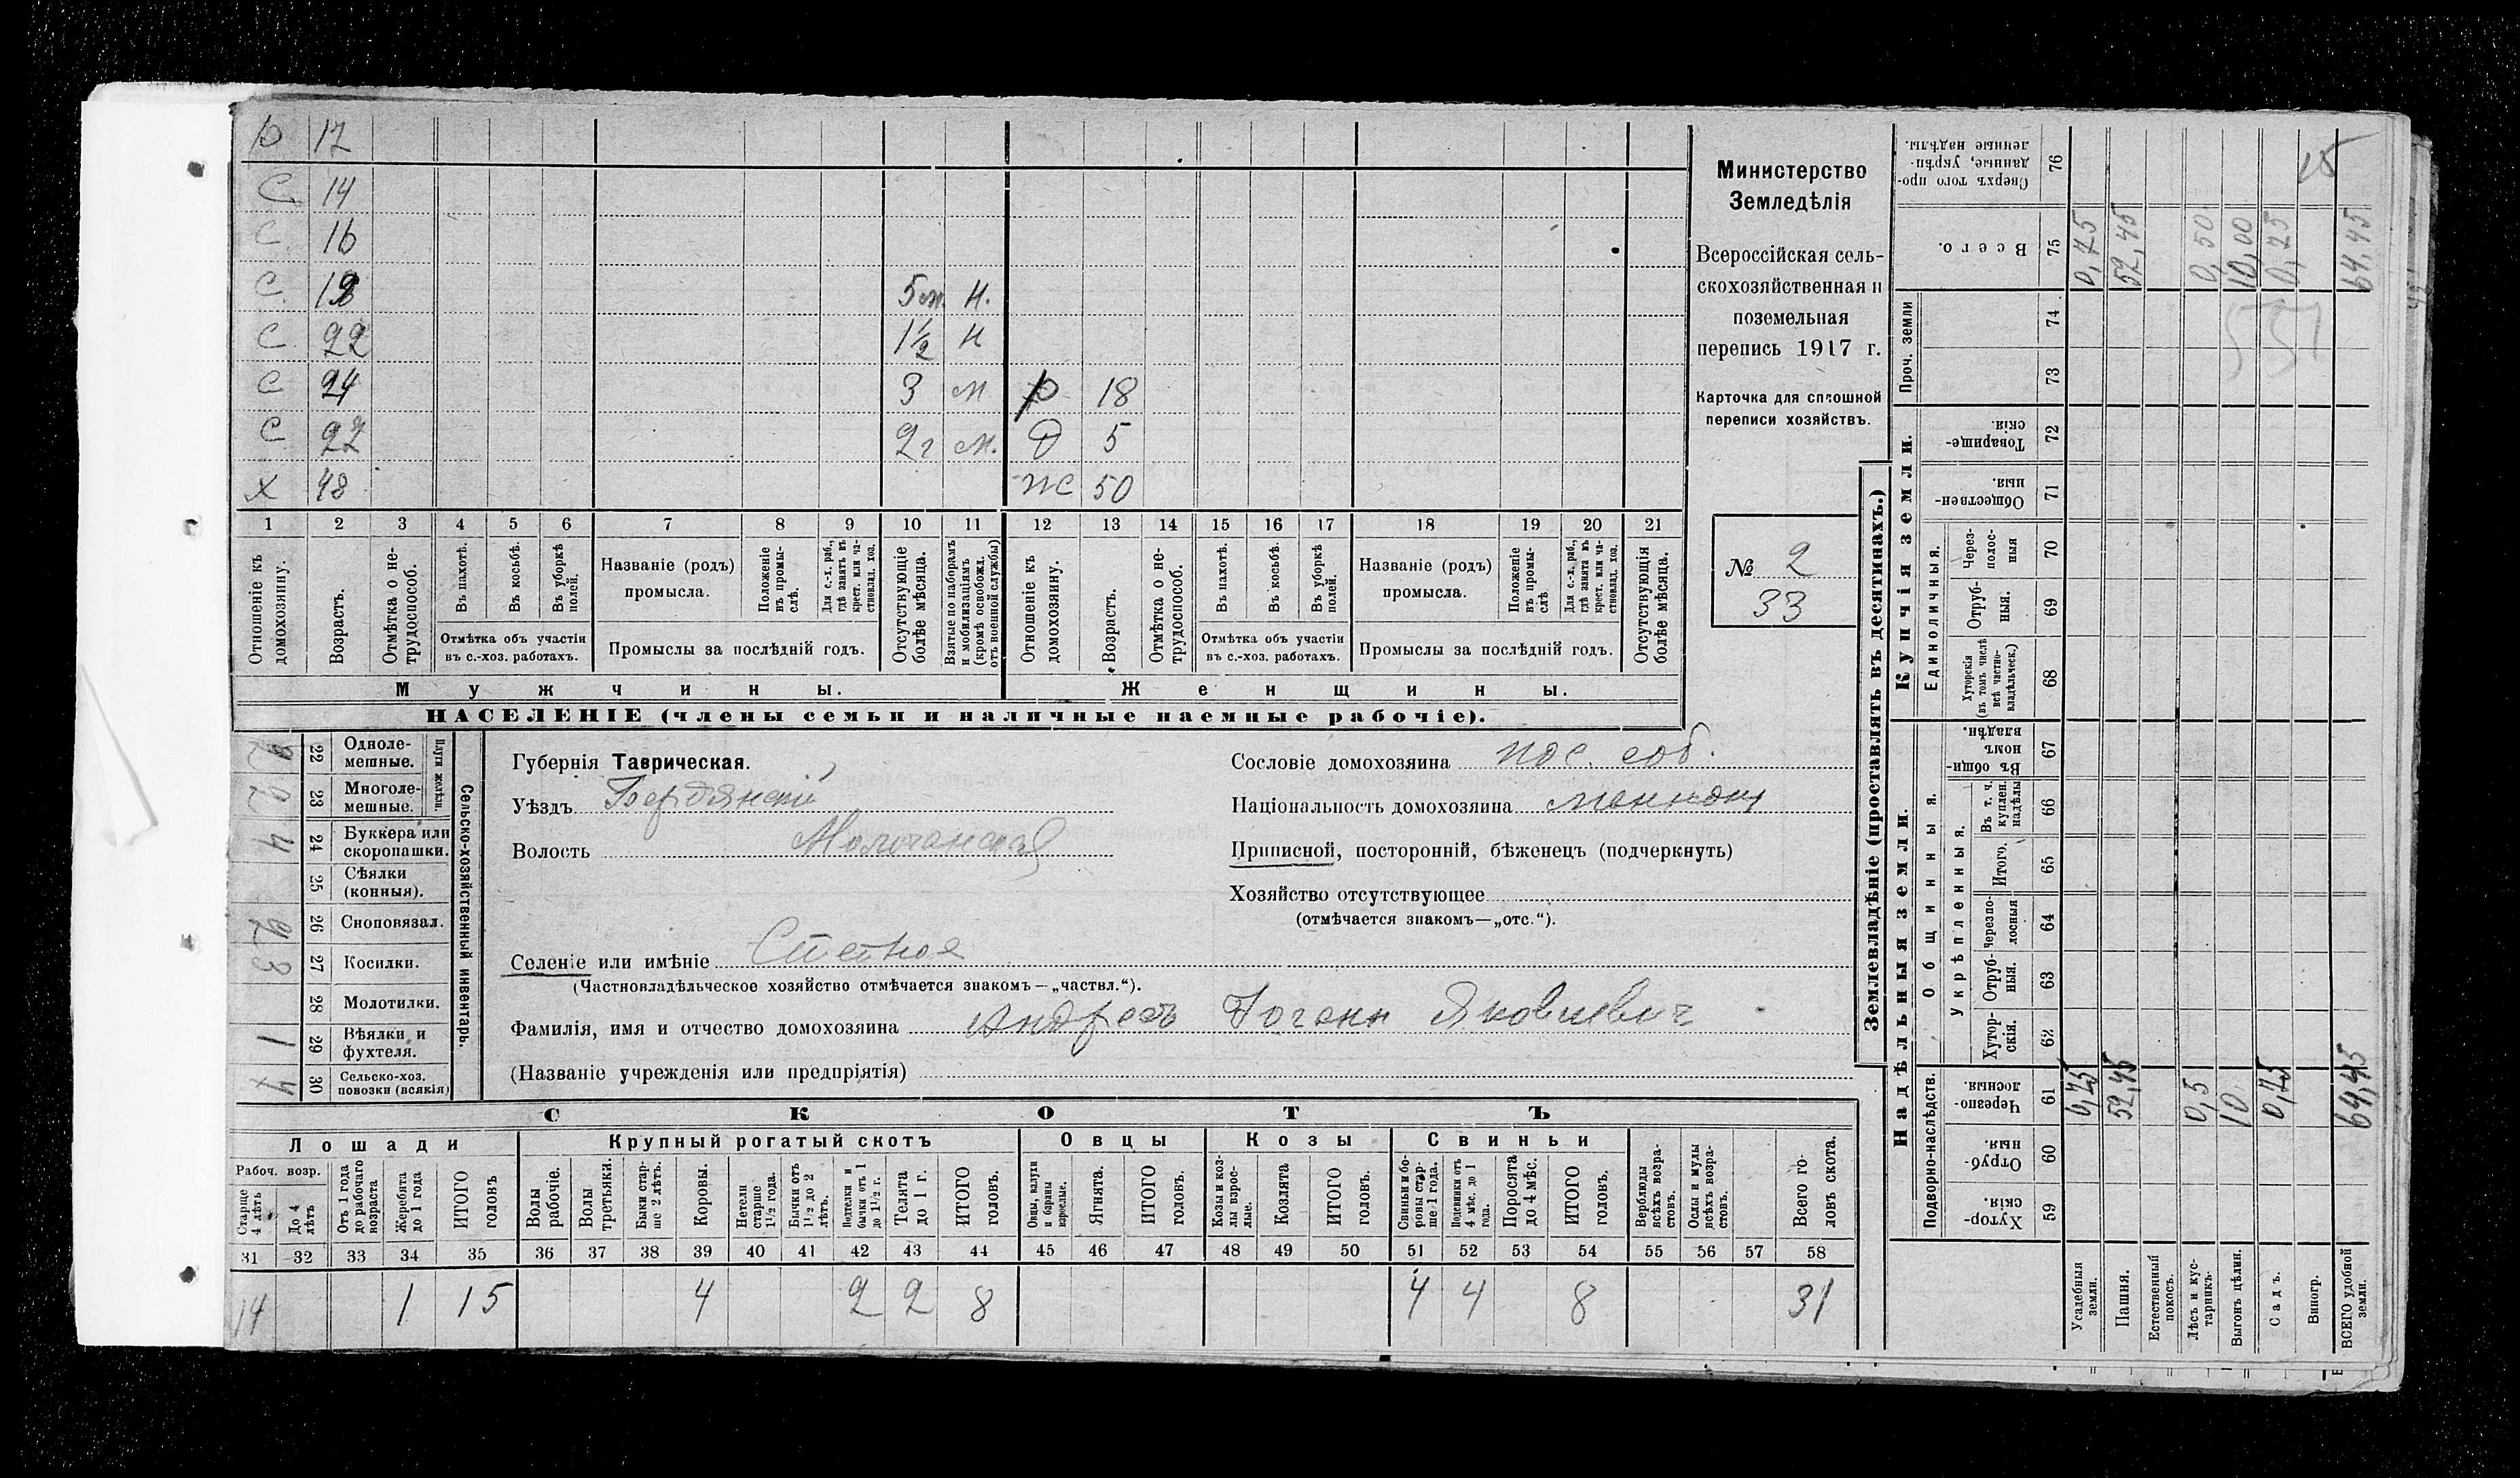 р 17
С 14
С 16
С. 19 5 м. н.
С 22 1½ н
С 24 3 м р 18
С 22 2 г м. Д 5
Х 48 ж 50
1 2 3 4 5 6 7 8 9 10 11 12 13 14 15 16 17 18 19 20 21
Отношеніе къ домохозяину.
Возрастъ.
Отмѣтка о не-
трудоспособ.
Въ пахотѣ.
Въ косьбѣ.
Въ уборкѣ
полей.
Отмѣтка объ участіи
въ с.-хоз. работахъ.
Названіе (родъ)
промысла.
Положеніе
въ промы-
слѣ.
Для с.-х. раб.,
гдѣ занятъ въ
крест. или ча-
стновлад. хоз.
Промыслы за послѣдній годъ.
Отсутствующіе
болѣе мѣсяца.
Взятые по наборамъ
и мобилизаціямъ
(кромѣ освобожд.
отъ военной службы)
Отношеніе къ
домохозяину.
Возрастъ.
Отмѣтка о не-
трудоспособ.
Въ пахотѣ.
Въ косьбѣ.
Въ уборкѣ
полей.
Отмѣтка объ участіи
въ с.-хоз. работахъ.
Названіе (родъ)
промысла.
Положеніе
въ промы-
слѣ
Для с.-х. раб.,
гдѣ занята въ
крест. или ча-
стновлад. хоз.
Промыслы за послѣдній годъ.
Отсутствующія
болѣе мѣсяца.
Мужчины.
Женщины.
НАСЕЛЕНІЕ (члены семьи и наличные наемные рабочіе).
Министерство
Земледѣлія
Всероссійская сель-
скохозяйственная и
поземельная
перепись 1917 г.
Карточка для сплошной
переписи хозяйствъ.
№ 2
33
Сельско-хозяйственный инвентарь.
Плуги желѣзн.
22 Одноле-
мешные.
2 23 Многоле-
мешные.
4 24 Буккера или
скоропашки.
25 Сѣялки
(конныя).
2 26 Сноповязал.
3 27 Косилки.
28 Молотилки.
1 29 Вѣялки и
фухтеля.
4 30 Сельско-хоз.
повозки (всякія)
Губернія Таврическая.
Уѣздъ Бердянскій
Волость Молочанская
Сословіе домохозяина пос. соб.
Національность домохозяина меннон
Приписной, посторонній, бѣженецъ (подчеркнуть)
Хозяйство отсутствующее
(отмѣчается знакомъ—„отс.“).
Селеніе или имѣніе
(Частновладѣльческое хозяйство отмѣчается знакомъ—„частвл.“).
Фамилія, имя и отчество домохозяина Андресъ Іоганн Яковлевич
(Названіе учрежденія или предпріятія)
СКОТЪ
Лошади Крупный рогатый скотъ Овцы Козы Свиньи
Рабоч. возр.
Старше
4 лѣтъ
До 4
лѣтъ
Отъ 1 года
до рабочаго
возраста
Жеребята
до 1 года
ИТОГО
головъ
Волы
рабочіе.
Волы
третьяки.
Быки стар-
ше 2 лѣтъ.
Коровы.
Нетели
старше
1½ года.
Бычки отъ
1½ до 2
лѣтъ.
Подтелки и
бычки отъ 1
до 1½ г.
Телята
до 1 г.
ИТОГО
головъ.
Овцы, валухи
и бараны
взрослые.
Ягнята.
ИТОГО
головъ.
Козы и коз-
лы взрос-
лые.
Козлята
ИТОГО
головъ.
Свиньи и бо-
ровы стар-
ше 1 года.
Подсвинки отъ
4 мѣс. до 1
года.
Поросята
до 4 мѣс.
ИТОГО
головъ.
Верблюды
всѣхъ возра-
стовъ.
Ослы и мулы
всѣхъ возра-
стовъ.
Всего го-
ловъ скота.
31 32 33 34 35 36 37 38 39 40 41 42 43 44 45 46 47 48 49 50 51 52 53 54 55 56 57 58
14 1 15 4 2 2 8 4 4 8 31
Землевладѣніе (проставлять въ десятинахъ.)
Купчія земли.
Надѣльныя земли.
Сверхъ того про-
данные, укрѣп-
ленные надѣлы.
76
Всего.
75 0,75 52,45 0,50 10,00 0,25 64,45
15
Проч. земли
74
73
551
Товарище-
скія.
72
Обществен-
ныя.
71
Единоличныя.
Через-
полос-
ныя
70
Отруб-
ныя.
69
Хуторскія
(въ томъ числѣ
всѣ частно-
владѣльческ.)
68
Общинныя.
Въ общи-
номъ
владѣн.
67
Укрѣпленныя.
Въ т. ч.
куплен.
надѣлы
66
Итого.
65
Черезпо-
лосныя
64
Отруб-
ныя.
63
Хутор-
скія.
62
Подворно-наслѣдств.
Черезпо-
лосныя.
61 0,75 52,45 0,5 10 0,25 64,45
Отруб-
ныя
60
Хутор-
скія.
59
Усадебныя
земли.
Пашня.
Естественный
покосъ.
Лѣсъ и кус-
тарникъ.
Выгонъ цѣлин.
Садъ.
Виногр.
ВСЕГО удобной
земли.